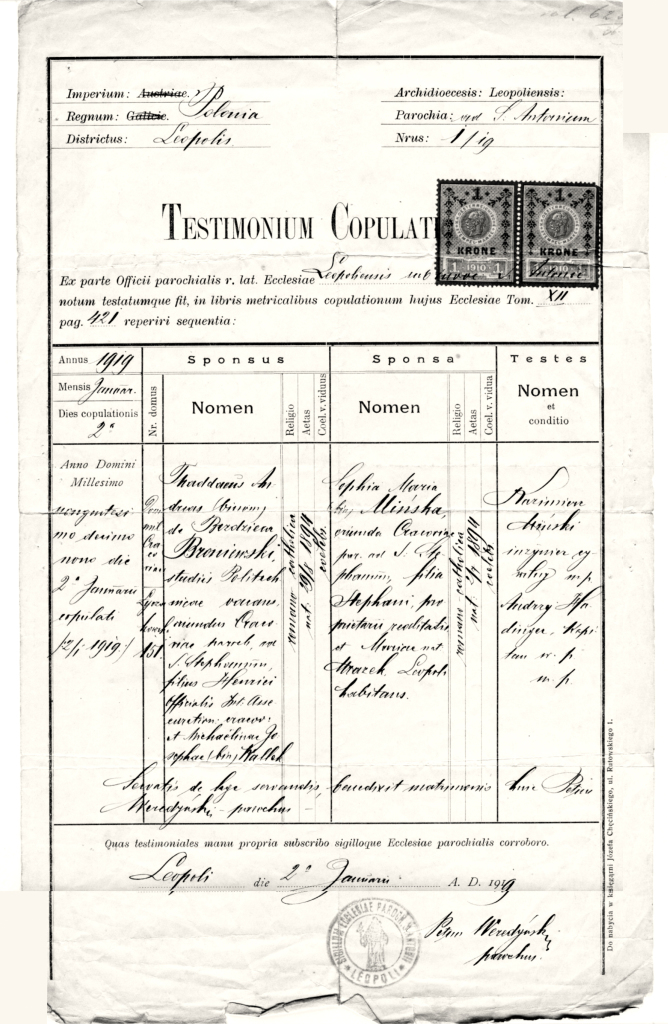 Imperium: Austriae. Polonia
Regnum: Galicie.
Districtus: Leopolis
Archidioecesis: Leopoliensis:
Parochia: ad S. Antonium
Nrus: 1/19
TESTIMONIUM COPULATI
1 1
KRONE KRONE
1 1910 1 1 1910 1
Ex parte Officii parochialis r. lat. Ecclesiae Leopoliensis sub
notum testatumque fit, in libris metricalibus copulationum hujus Ecclesiae Tom. XII
pag. 421 reperiri sequentia:
Annus 1919
Mensis Januar.
Dies copulationis
2a
Nr. domus
Sponsus
Nomen
Religio
Aetas
Coel. v. viduus
Sponsa
Nomen
Religio
Aetas
Coel. v. vidua
Testes
Nomen
et
conditio
Anno Domini
Millesimo
nongentesi
mo decimo
nono die
2a Januarii
copulati
/2/1 1919/
151.
Thaddaeus An
dreas (binom)
de Berdziera
Broniewski,
studiis Politech
nicae vacans,
oriundus Craco
viae paroch. ad
S. Stephanum,
filius Henrici
Officialis
et Michaëlinae Jo
sephae (bin) Hallek
romano catholica
nat. 29/8 1894
coelebs
Sophia Maria
bin. Mińska,
oriunda Cracoviae
par. ad S. Ste
phanum, filia
Stephani, pro
prietarii realitatis
et Mariae nat.
Mrazek. Leopoli
habitans.
romano catholica
1894
coelebs
Kazimierz
Miński
inżynier cy
wilny m. p.
Andrzej Ha
dinger, Kapi
tan w. p.
m. p.
Servatis de lege servandis, benedixit matrimonio huic Petrus
Weredyński parochus
Quas testimoniales manu propria subscribo sigilloque Ecclesiae parochialis corroboro.
Leopoli die 2a Januarii A. D. 1919
Petrus Weredyński
parochus.
SIGILLUM ECCLESIAE PAROCH. S. ANTONII
LEOPOLI
Do nabycia w księgarni Józefa Chęcińskiego, ul. Rutowskiego 1.